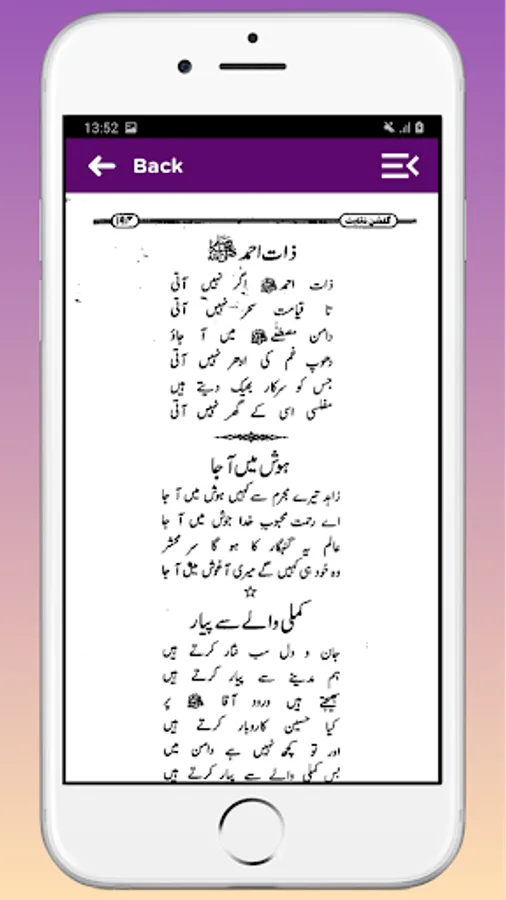 13:52
Back
گلشن نقابت ۱۹۳
ذات احمد ﷺ
ذات احمد ﷺ اگر نہیں آتی
تا قیامت سحر نہیں آتی
دامن مصطفےٰ ﷺ میں آ جاؤ
دھوپ غم کی ادھر نہیں آتی
جس کو سرکار بھیک دیتے ہیں
مفلسی اس کے گھر نہیں آتی
ہوش میں آ جا
زاہد تیرے مجرم سے کہیں ہوش میں آ جا
اے رحمت محبوب خدا جوش میں آ جا
عالم یہ گنہگار کا ہو گا سر محشر
وہ خود ہی کہیں گے میری آغوش میں آ جا
☆
کملی والے سے پیار
جان و دل سب نثار کرتے ہیں
ہم مدینے سے پیار کرتے ہیں
بھیجتے ہیں درود آقا ﷺ پر
کیا حسین کاروبار کرتے ہیں
اور تو کچھ نہیں ہے دامن میں
بس کملی والے سے پیار کرتے ہیں